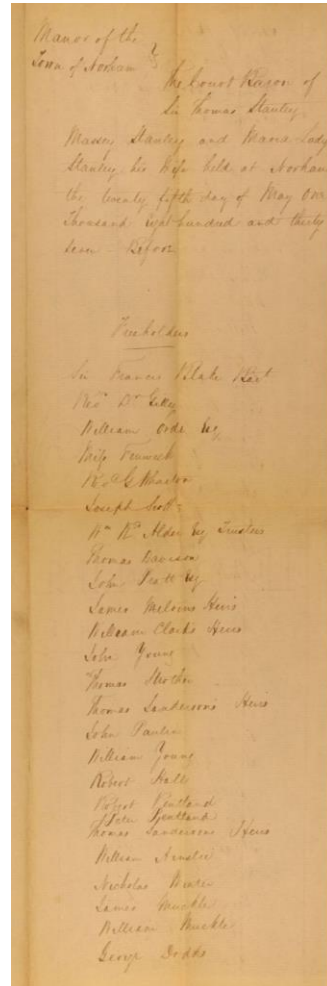 Manor of the
Town of Norham }
The Court Baron of
Sir Thomas Stanley
Massey Stanley and Maria Lady
Stanley his Wife held at Norham
the twenty fifth day of May One
Thousand Eight hundred and thirty
seven Before
Freeholders
Sir Francis Blake Bart
Revd Dr Gilly
William Orde Esq
Miss Fenwick
Revd G Wharton
Joseph Scott
Wm Rd Alder Esq Trustees
Thomas Davison
John Pratt Esq
James Melvins Heirs
William Clarks Heirs
John Young
Thomas Strother
Thomas Sandersons Heirs
John Paulin
William Young
Robert Halls
Robert Pentland
Peter Pentland
Thomas Sandersons Heirs
William Ainslie
Nicholas Winter
James Muckle
William Muckle
George Dodds